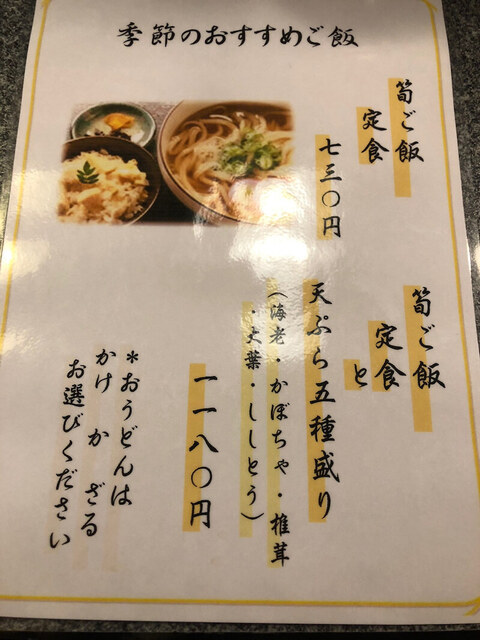 季節のおすすめご飯
筍ご飯
定食
七三〇円
筍ご飯
定食
と
天ぷら五種盛り
(海老・かぼちゃ・椎茸
・大葉・ししとう)
一一八〇円
*おうどんは
かけ か ざる
お選びください